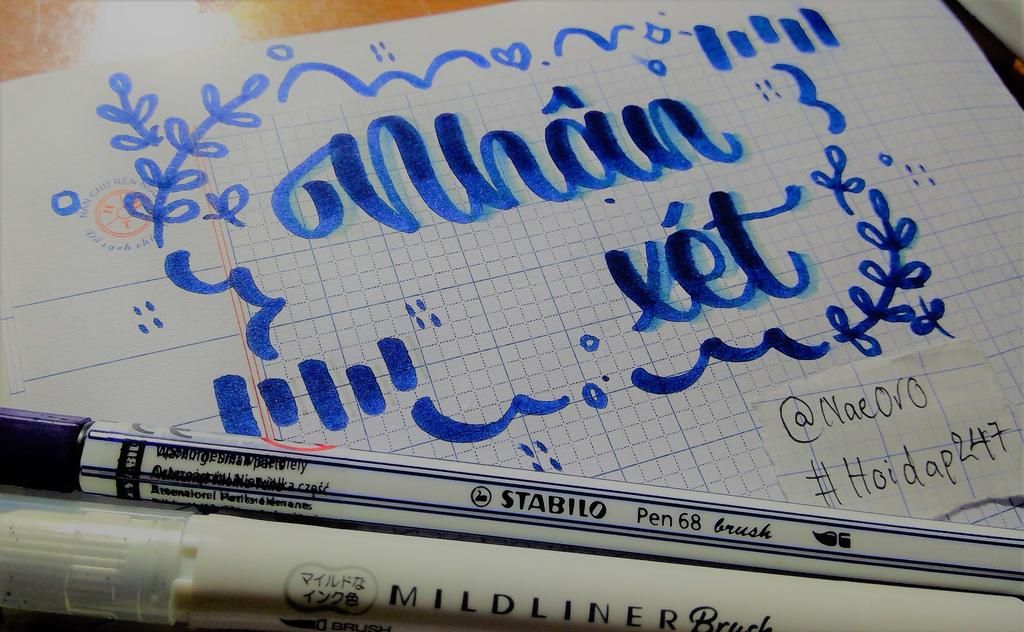 Nhân
xét
@NaeOrO
#Hoidap247
STABILO Pen 68 brush
マイルドな
インク色
MILDLINER Brush
BRUSH